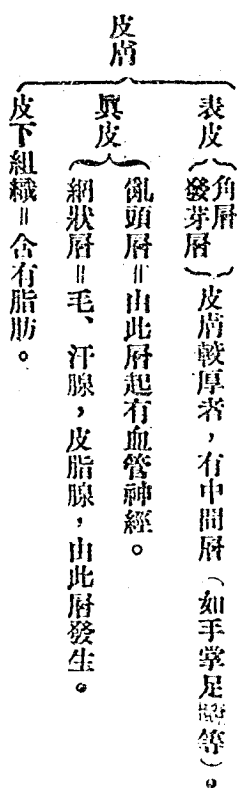 皮膚
表皮
角層
發芽層
皮膚較厚者，有中間層（如手掌足蹠等）。
眞皮
亂頭層＝由此層起有血管神經。
網狀層＝毛、汗腺，皮脂腺，由此層發生。
皮下組織＝含有脂肪。